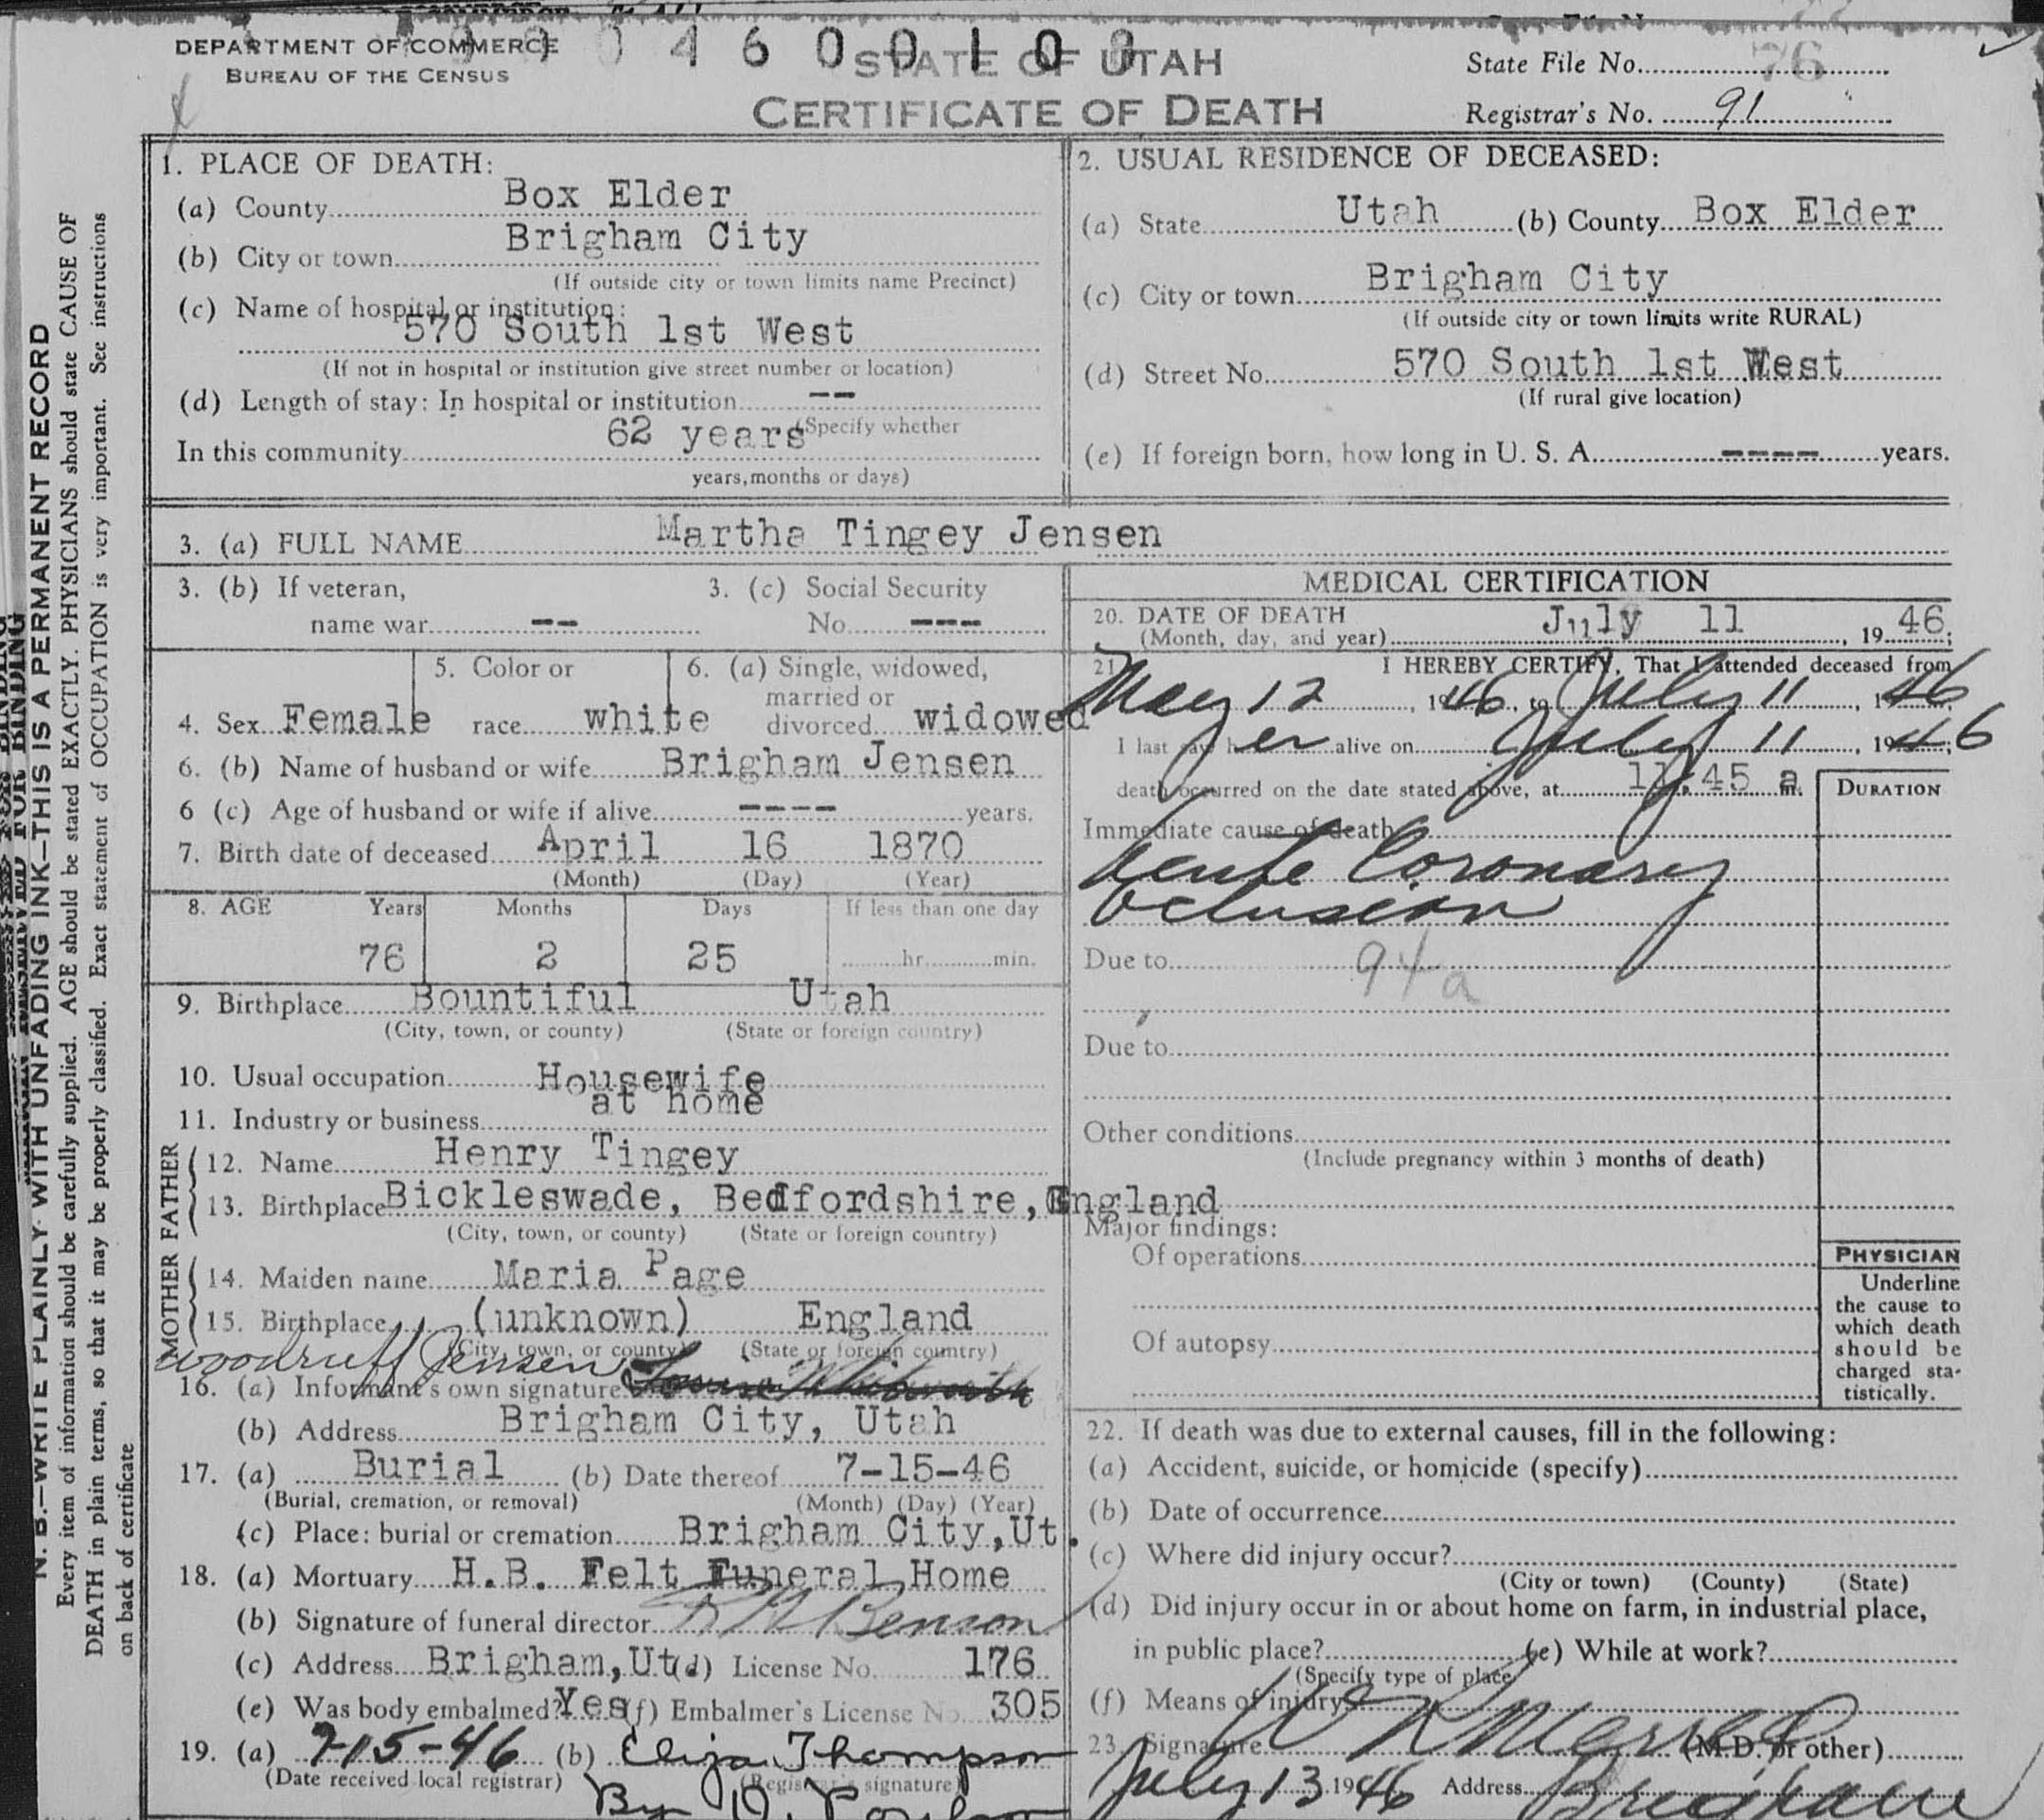 DEPARTMENT OF COMMERCE
BUREAU OF THE CENSUS
0 4 6 0 0 1 0
STATE OF UTAH
CERTIFICATE OF DEATH
State File No. 76
Registrar's No. 91
N. B.—WRITE PLAINLY WITH UNFADING INK—THIS IS A PERMANENT RECORD
Every item of information should be carefully supplied. AGE should be stated EXACTLY. PHYSICIANS should state CAUSE OF
DEATH in plain terms, so that it may be properly classified. Exact statement of OCCUPATION is very important. See instructions
on back of certificate
1. PLACE OF DEATH:
(a) County Box Elder
(b) City or town Brigham City
(If outside city or town limits name Precinct)
(c) Name of hospital or institution:
570 South 1st West
(If not in hospital or institution give street number or location)
(d) Length of stay: In hospital or institution --
(Specify whether
In this community 62 years
years, months or days)
2. USUAL RESIDENCE OF DECEASED:
(a) State Utah (b) County Box Elder
(c) City or town Brigham City
(If outside city or town limits write RURAL)
(d) Street No. 570 South 1st West
(If rural give location)
(e) If foreign born, how long in U. S. A. ---- years.
3. (a) FULL NAME Martha Tingey Jensen
3. (b) If veteran,
name war --
3. (c) Social Security
No. ---
4. Sex Female
5. Color or
race white
6. (a) Single, widowed,
married or
divorced widowed
6. (b) Name of husband or wife Brigham Jensen
6 (c) Age of husband or wife if alive ---- years.
7. Birth date of deceased April 16 1870
(Month) (Day) (Year)
8. AGE Years Months Days If less than one day
76 2 25 hr. min.
9. Birthplace Bountiful Utah
(City, town, or county) (State or foreign country)
10. Usual occupation Housewife
at home
11. Industry or business
FATHER
12. Name Henry Tingey
13. Birthplace Bickleswade, Bedfordshire, England
(City, town, or county) (State or foreign country)
MOTHER
14. Maiden name Maria Page
15. Birthplace (unknown) England
(City, town, or county) (State or foreign country)
Woodruff Jensen
16. (a) Informant's own signature
(b) Address Brigham City, Utah
17. (a) Burial (b) Date thereof 7-15-46
(Burial, cremation, or removal) (Month) (Day) (Year)
(c) Place: burial or cremation Brigham City, Ut.
18. (a) Mortuary H.B. Felt Funeral Home
(b) Signature of funeral director Benson
(c) Address Brigham, Ut (d) License No. 176
(e) Was body embalmed? Yes (f) Embalmer's License No. 305
19. (a) 7-15-46 (b) Eliza Thompson
(Date received local registrar) (Registrar's signature)
By
MEDICAL CERTIFICATION
20. DATE OF DEATH
(Month, day, and year) July 11, 19 46;
21. I HEREBY CERTIFY, That I attended deceased from
May 12, 1946, to July 11, 1946
I last saw her alive on July 11, 1946;
death occurred on the date stated above, at 11:45 a m.
DURATION
Immediate cause of death
Acute Coronary
Oclusion
Due to 94a
Due to
Other conditions
(Include pregnancy within 3 months of death)
Major findings:
Of operations
Of autopsy
PHYSICIAN
Underline
the cause to
which death
should be
charged sta-
tistically.
22. If death was due to external causes, fill in the following:
(a) Accident, suicide, or homicide (specify)
(b) Date of occurrence
(c) Where did injury occur?
(City or town) (County) (State)
(d) Did injury occur in or about home on farm, in industrial place,
in public place? (e) While at work?
(Specify type of place)
(f) Means of injury
23. Signature (M.D. or other)
July 13 1946 Address Brigham